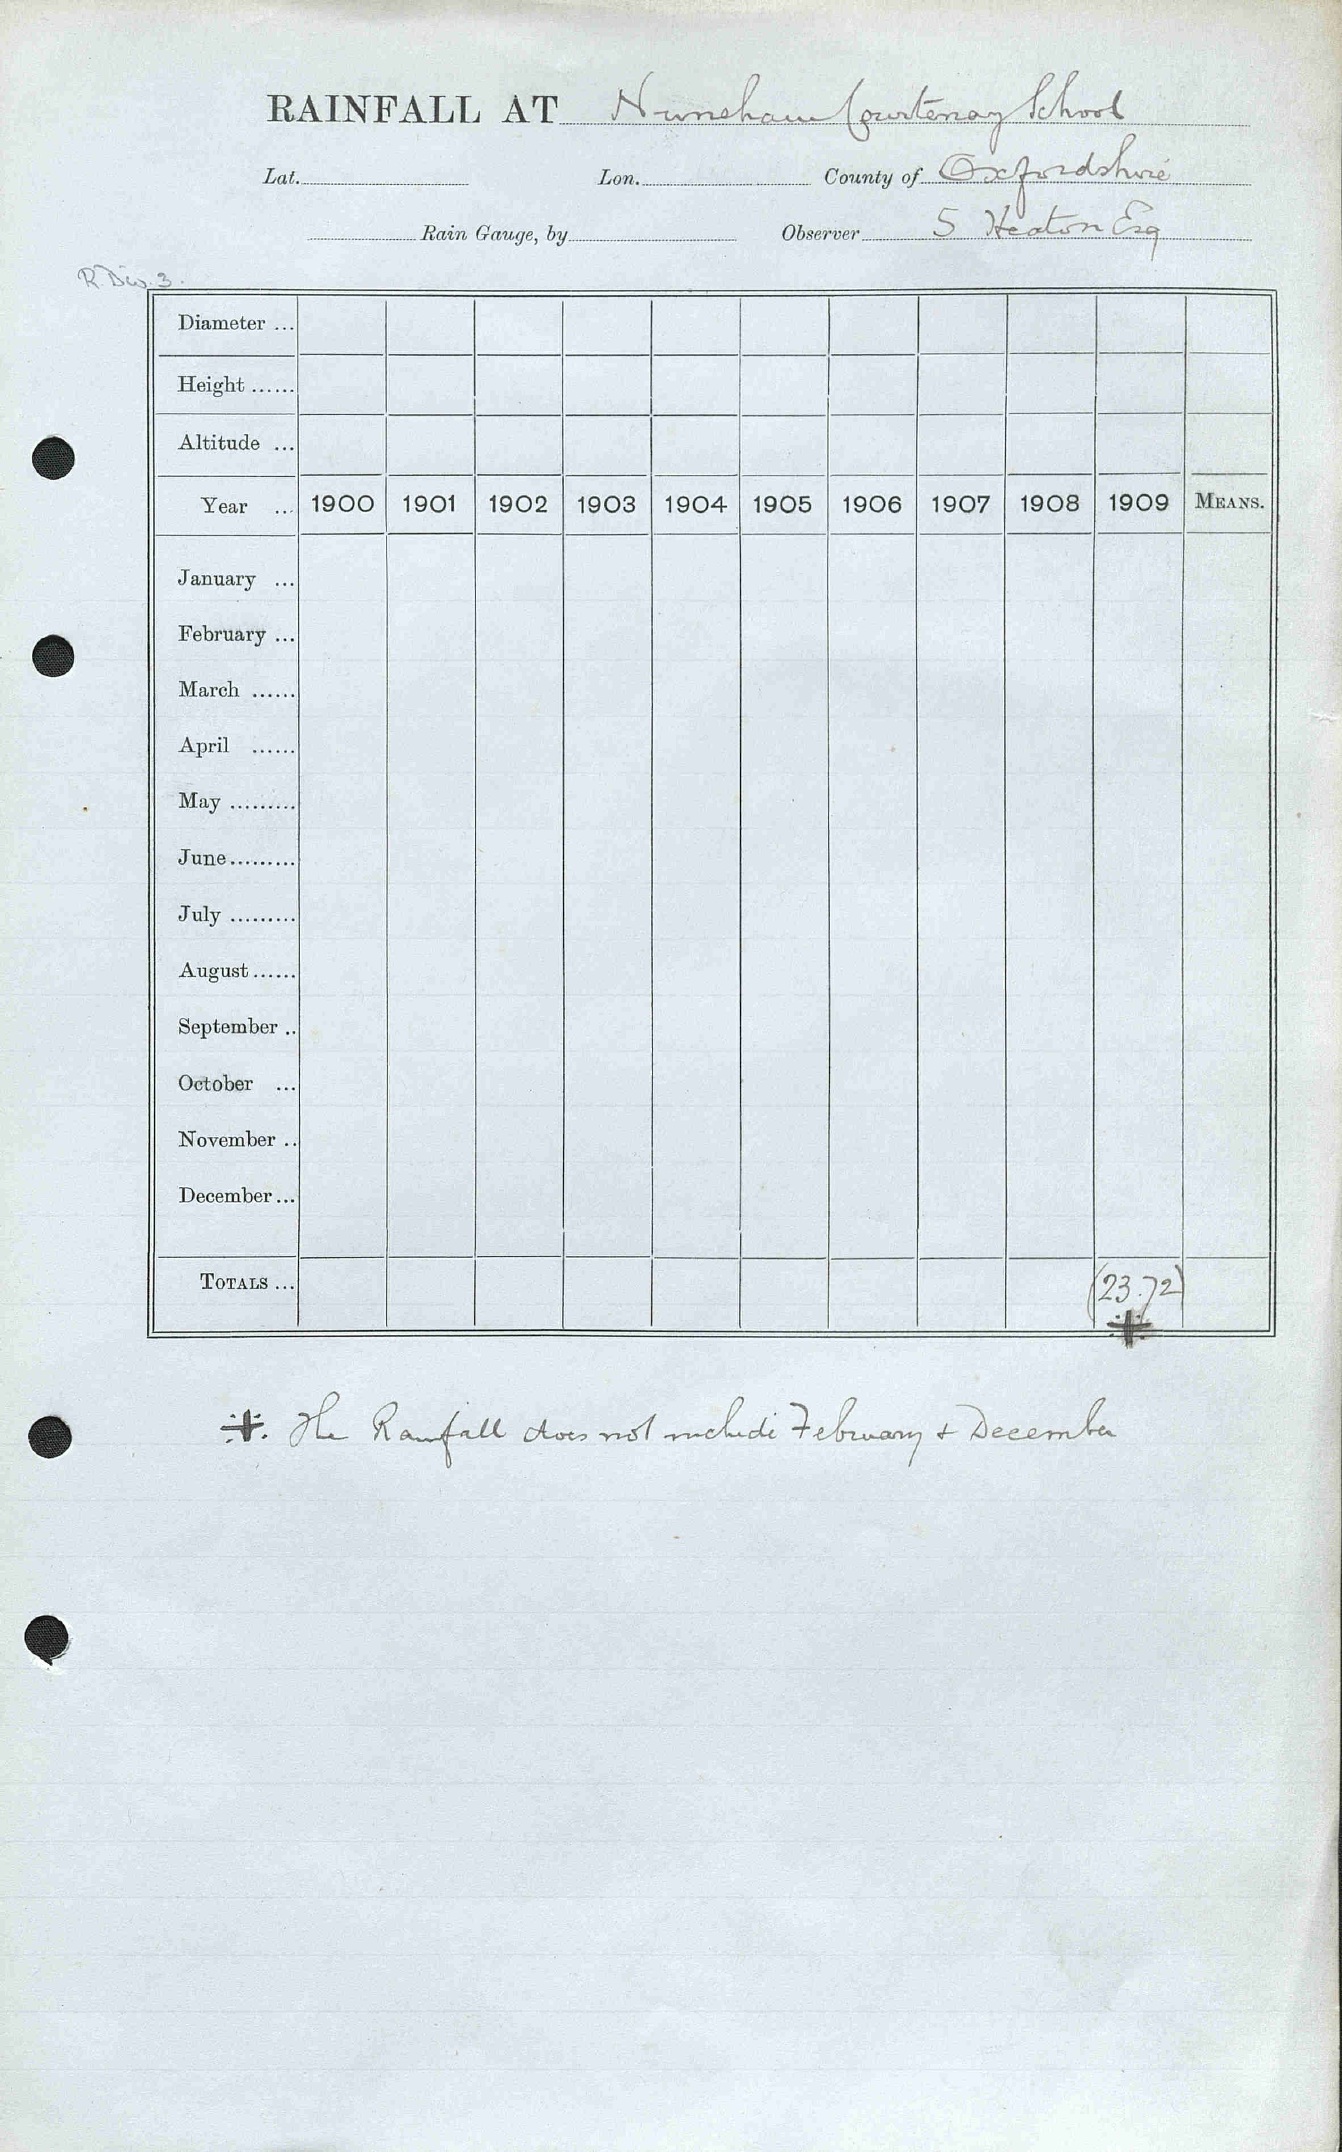 RAINFALL AT Nuneham Courtenay School
Lat. Lon. County of Oxfordshire
Rain Gauge, by Observer S Heaton Esq
R Div. 3.
Diameter ...
Height ......
Altitude ...
Year ... 1900 1901 1902 1903 1904 1905 1906 1907 1908 1909 MEANS.
January ...
February ...
March ......
April ......
May .........
June .........
July .........
August ......
September ..
October ...
November ..
December ...
TOTALS ... (23.72)
※
※. The Rainfall does not include February + December